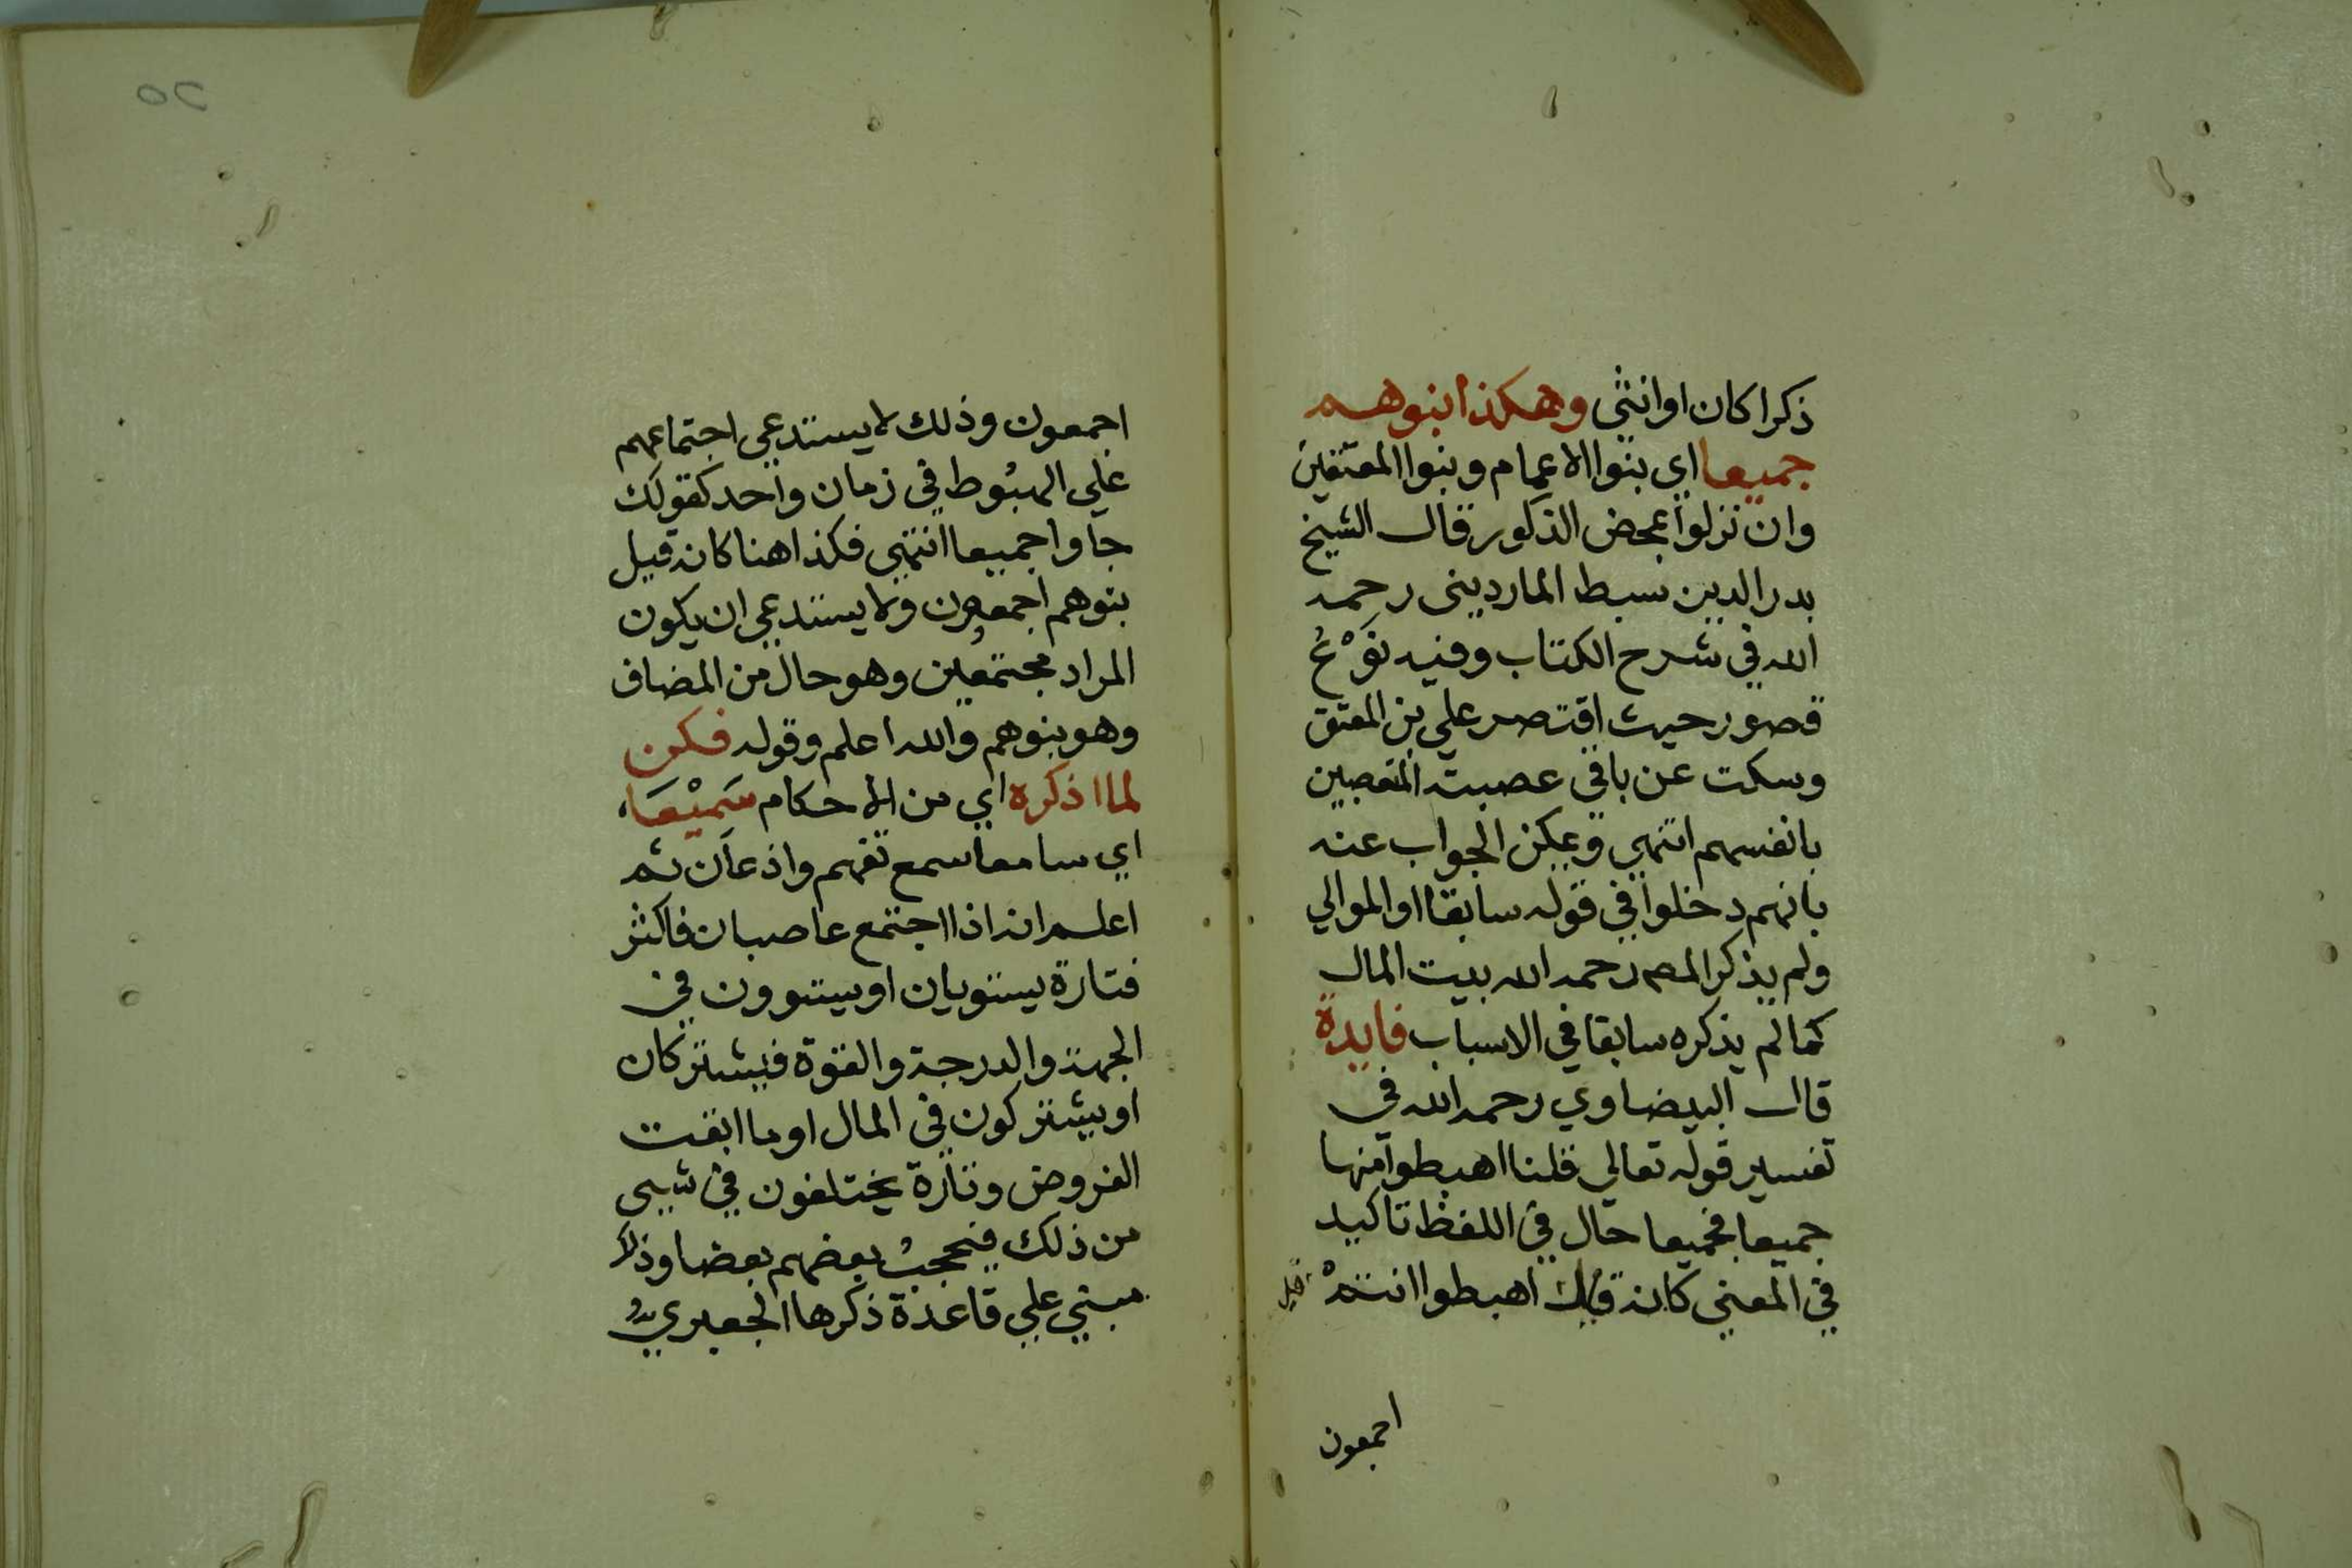 ذكرا كان او انثى وهكذا بنوهم
جميعا اي بنوا الاعمام وبنوا المعتقين
وان نزلوا بمحض الذكور قال الشيخ
بدر الدين سبط المارديني رحمه
الله في شرح الكتاب وفيه نَوْعُ
قصور حيث اقتصر علي بن المعتق
وسكت عن باقي عصبته المتعصبين
بانفسهم انتهي ويمكن الجواب عنه
بانهم دخلوا في قوله سابقا او الموالي
ولم يذكر المصـ رحمه الله بيت المال
كما لم يذكره سابقا في الاسباب فايدة
قال البيضاوي رحمه الله في
تفسير قوله تعالي قلنا اهبطوا منها
جميعا فجميعا حال في اللفظ تاكيد
في المعني كانه قيل اهبطوا انتم
قيل
اجمعون
٥٢
اجمعون وذلك لا يستدعي اجتماعهم
علي الهبُوط في زمان واحد كقولك
جاوا جميعا انتهي فكذا هنا كانه قيل
بنوهم اجمعون ولا يستدعي ان يكون
المراد مجتمعين وهو حال من المضاف
وهو بنوهم والله اعلم وقوله فكن
لما اذكره اي من الاحكام سَميْعَا
اي سامعا سمع تفهم واذعان ثم
اعلم انه اذا اجتمع عاصبان فاكثر
فتارة يستويان او يستوون في
الجهة والدرجة والقوة فيشتركان
او يشتركون في المال او ما ابقت
الفروض وتارة يختلفون في شيى
من ذلك فيحجبُ بعضهم بعضا وذلك
مبني علي قاعدة ذكرها الجعبري